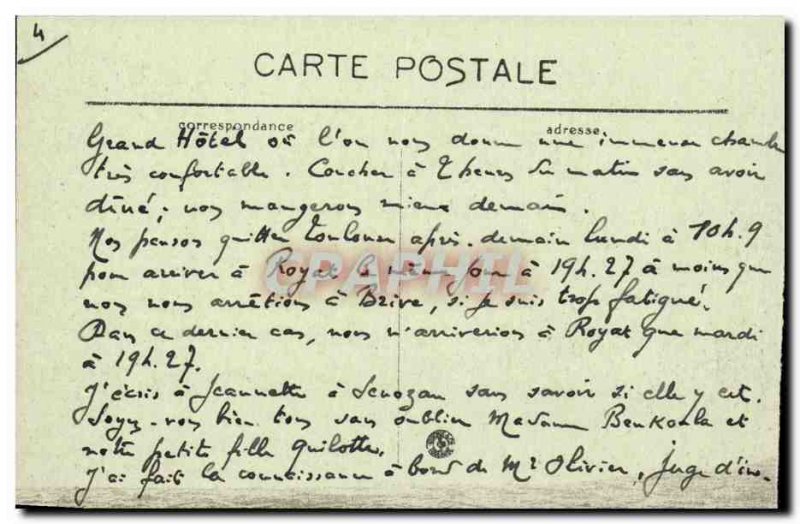 4
CARTE POSTALE
correspondance
adresse
Grand Hôtel où l'on nous donne une immense chambre
très confortable. Coucher à 2 heures du matin sans avoir
dîné; nous mangerons mieux demain.
Nos pensons quitter Toulouse après-demain lundi à 10h.9
pour arriver à Royat le même jour à 19h.27 à moins que
nous nous arrêtions à Brive, si je suis trop fatigué.
Dans ce dernier cas, nous n'arriverions à Royat que mardi
à 19h.27.
J'écris à Jeannette à Senozan sans savoir si elle y est.
Soyez-vous bien tous sans oublier Madame Benkoula et
notre petite fille
J'ai fait la connaissance à bord de Mr Olivier, Juge d'ins-
CPAPHIL